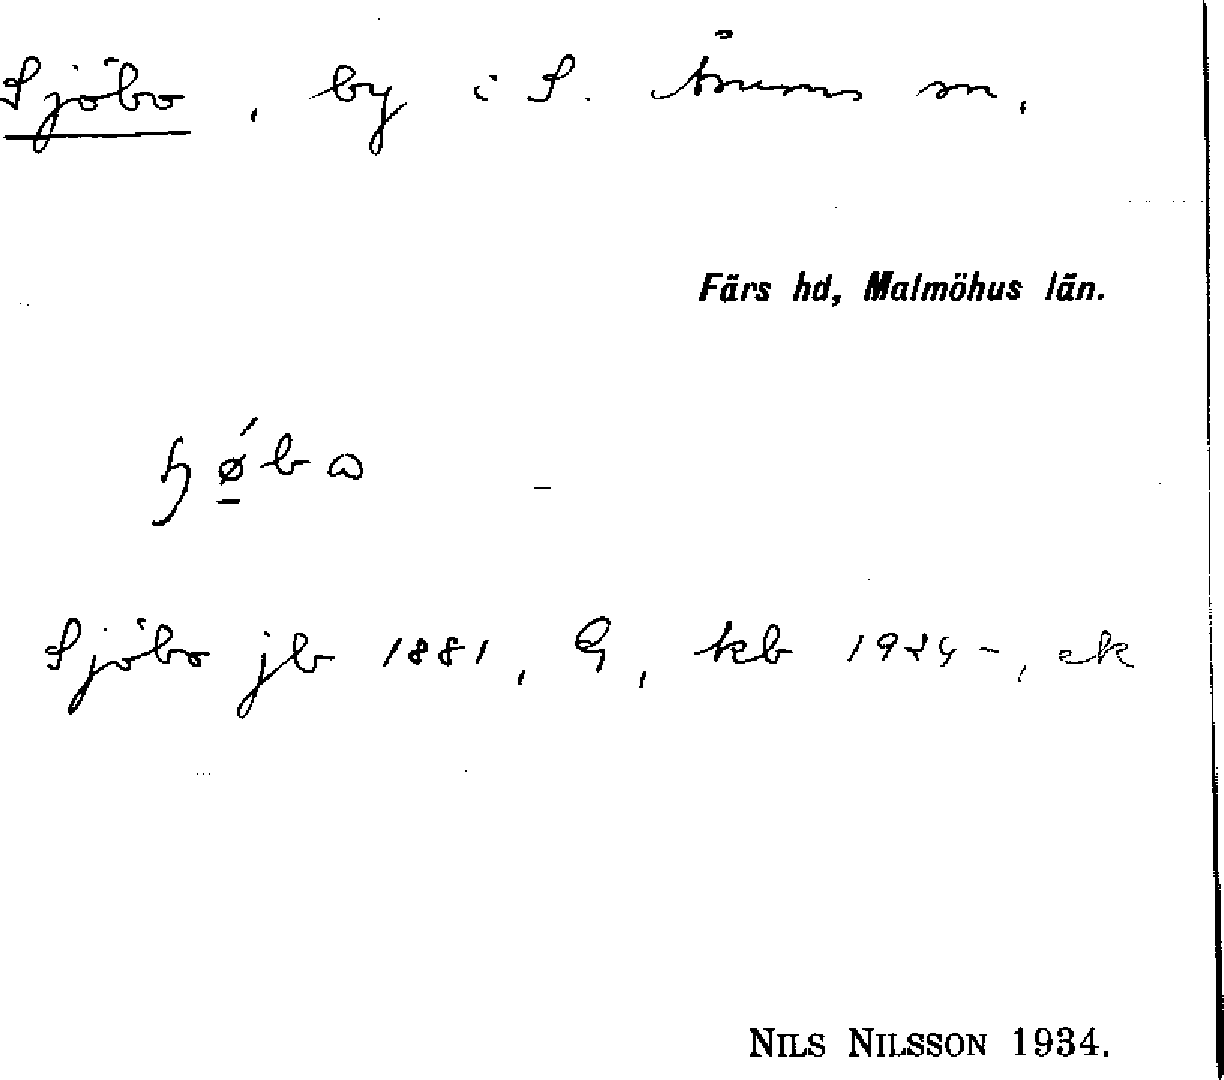 Sjöbo, by i S. Åsums sn,
Färs hd, Malmöhus län.
Sjöbo jb 1881, G, kb 1924-, ek
NILS NILSSON 1934.